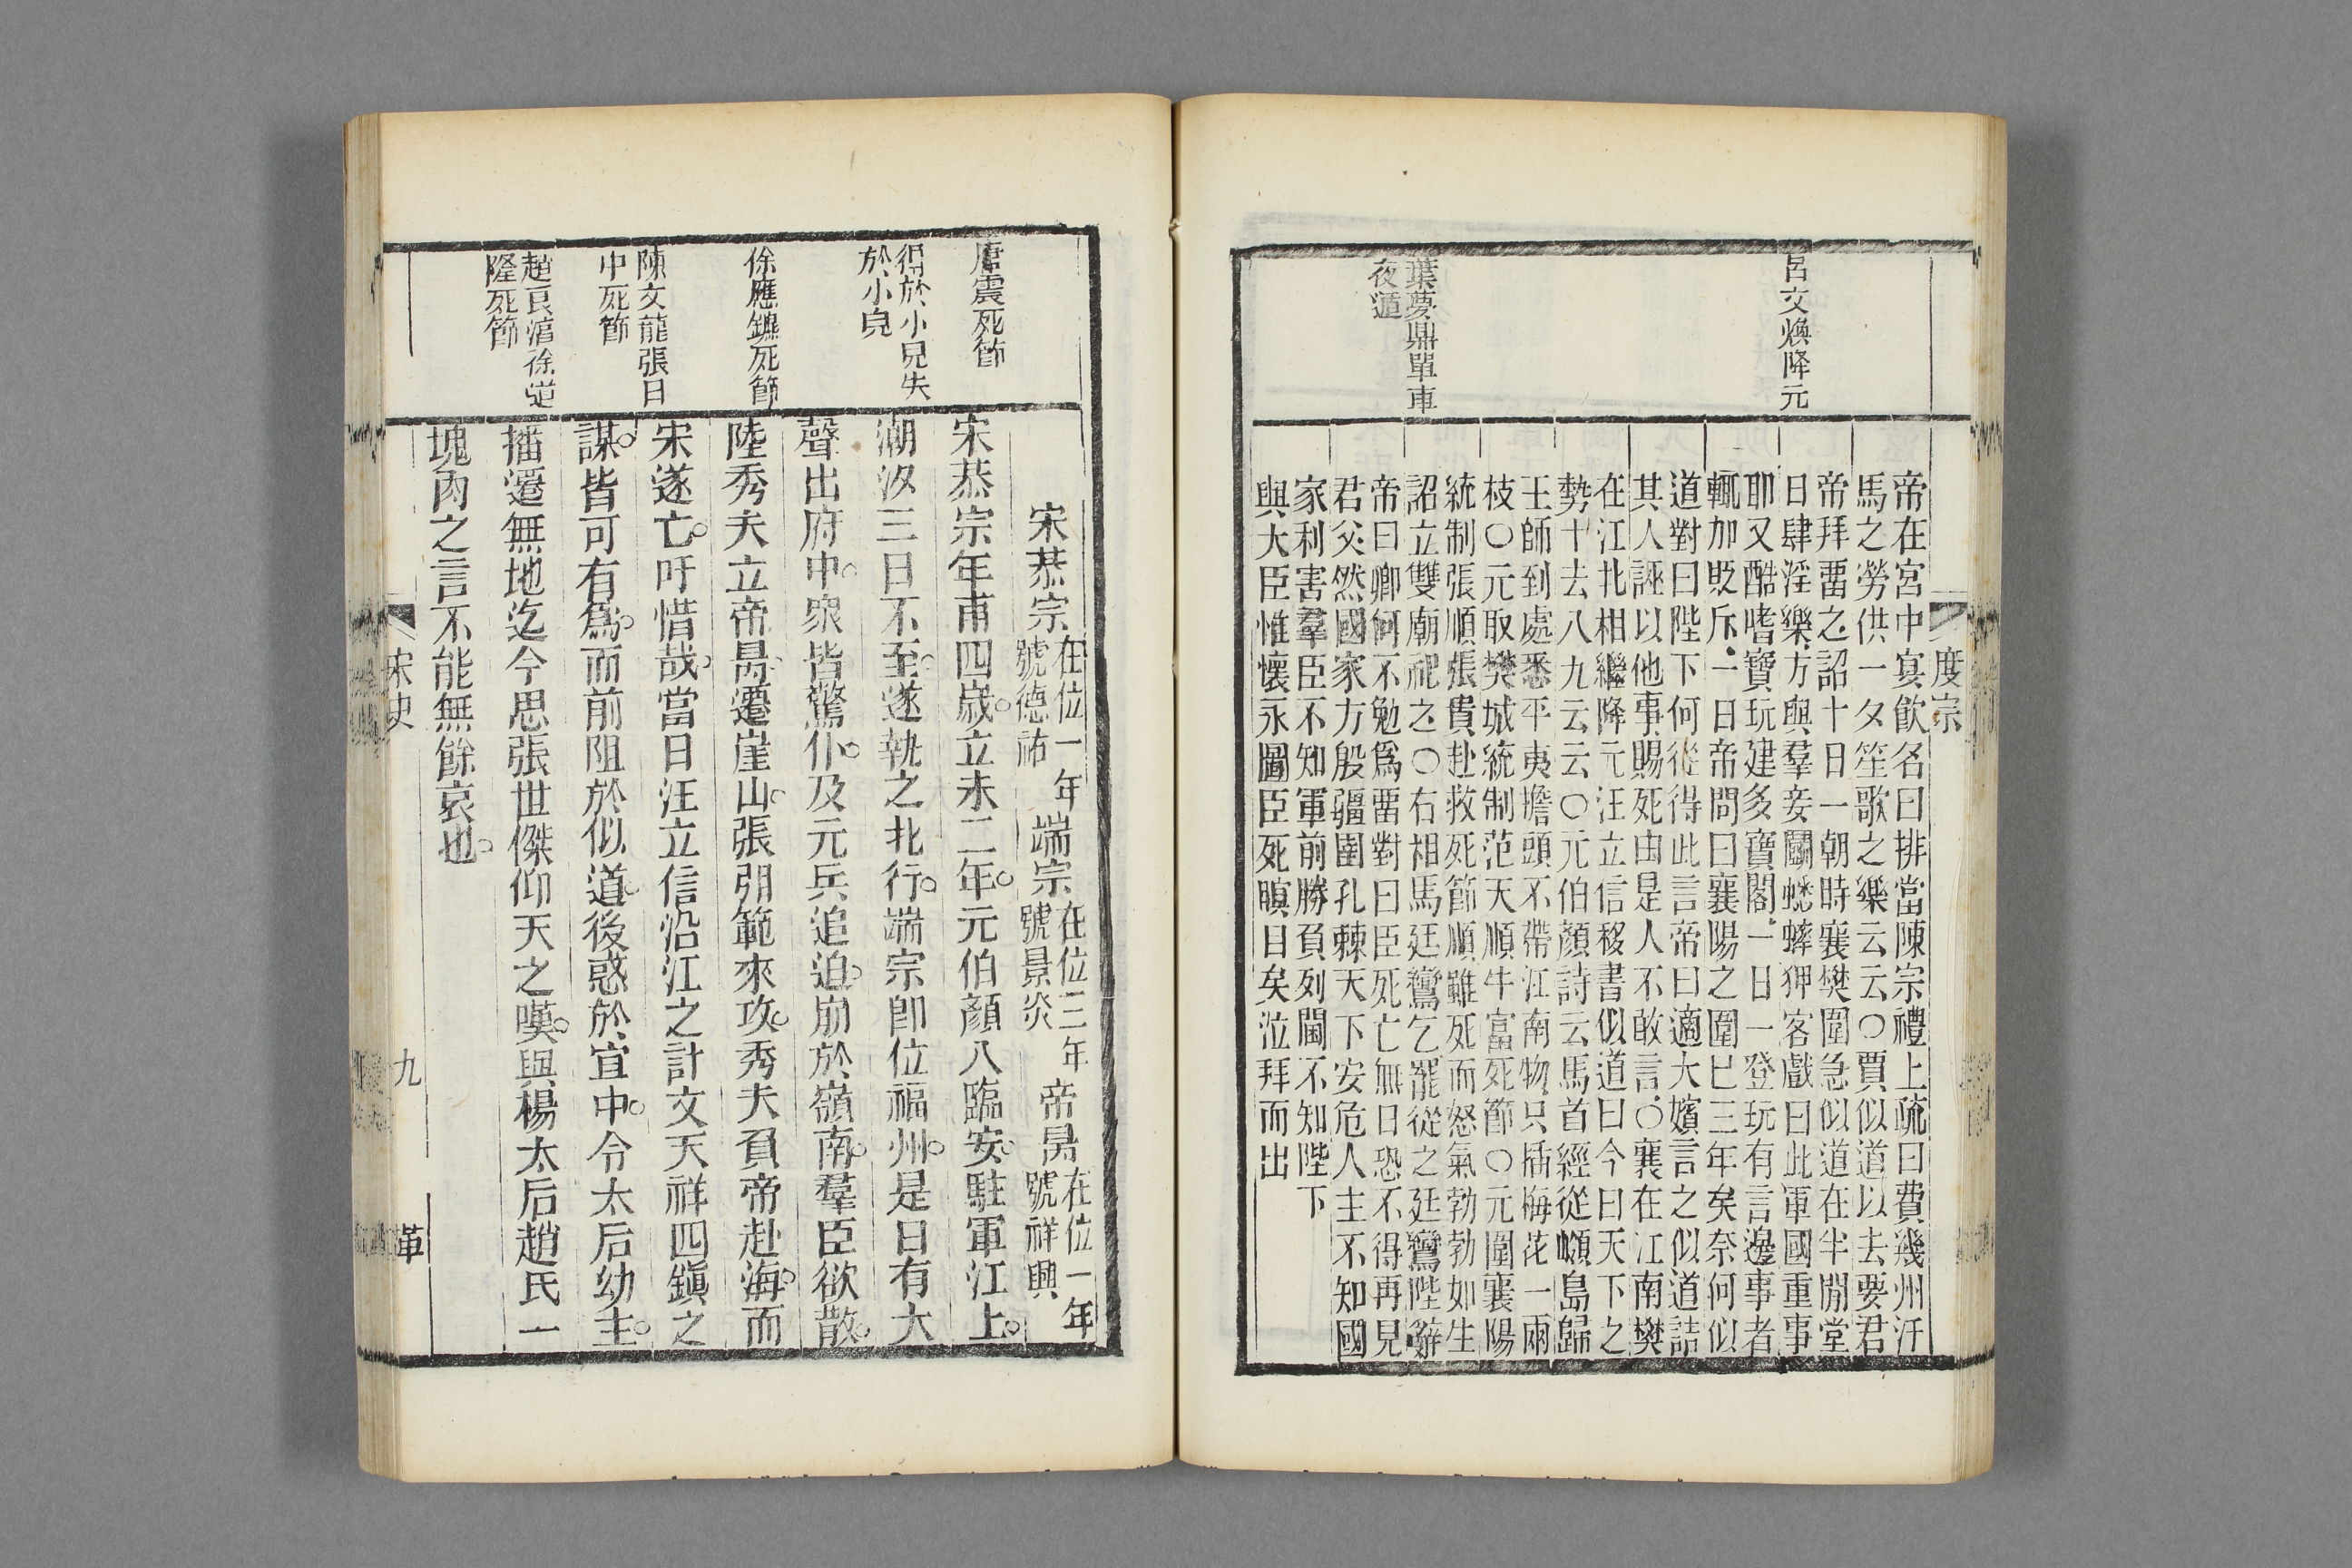 度宗
呂文煥降元
葉夢鼎單車
夜遁
帝在宮中宴飮名曰排當陳宗禮上疏曰費幾州汗
馬之勞供一夕笙歌之樂云云○賈似道以去要君
帝拜畱之詔十日一朝時襄樊圍急似道在半閒堂
日肆淫樂方與羣妾鬭蟋蟀狎客戲曰此軍國重事
耶又酷嗜寶玩建多寶閣一日一登玩有言邊事者
輒加貶斥一日帝問曰襄陽之圍已三年矣奈何似
道對曰陛下何從得此言帝曰適大嬪言之似道詰
其人誣以他事賜死由是人不敢言○襄在江南樊
在江北相繼降元汪立信移書似道曰今日天下之
勢十去八九云云○元伯顏詩云馬首經從嶺島歸
王師到處悉平夷擔頭不帶江南物只插梅花一兩
枝○元取樊城統制范天順牛富死節○元圍襄陽
統制張順張貴赴救死節順雖死而怒氣勃勃如生
詔立雙廟祀之○右相馬廷鸞乞罷從之廷鸞陛辭
帝曰卿何不勉爲畱對曰臣死亡無日恐不得再見
君父然國家方殷疆圉孔棘天下安危人主不知國
家利害羣臣不知軍前勝負列閫不知陛下
與大臣惟懷永圖臣死瞑目矣泣拜而出
唐震死節
得於小兒失
於小皃
徐應鑣死節
陳文龍張日
中死節
趙良淳徐道
隆死節
宋恭宗在位一年號德祐端宗在位三年號景炎帝昺在位一年號祥興
宋恭宗年甫四歲立未二年元伯顏入臨安駐軍江上
潮汐三日不至遂執之北行端宗卽位福州是日有大
聲出府中眾皆驚仆及元兵追迫崩於嶺南羣臣欲散
陸秀夫立帝昺遷崖山張弘範來攻秀夫負帝赴海而
宋遂亡吁惜哉當日汪立信沿江之計文天祥四鎭之
謀皆可有爲而前阻於似道後惑於宜中令太后幼主
播遷無地迄今思張世傑仰天之嘆與楊太后趙氏一
塊肉之言不能無餘哀也
宋史
九
革